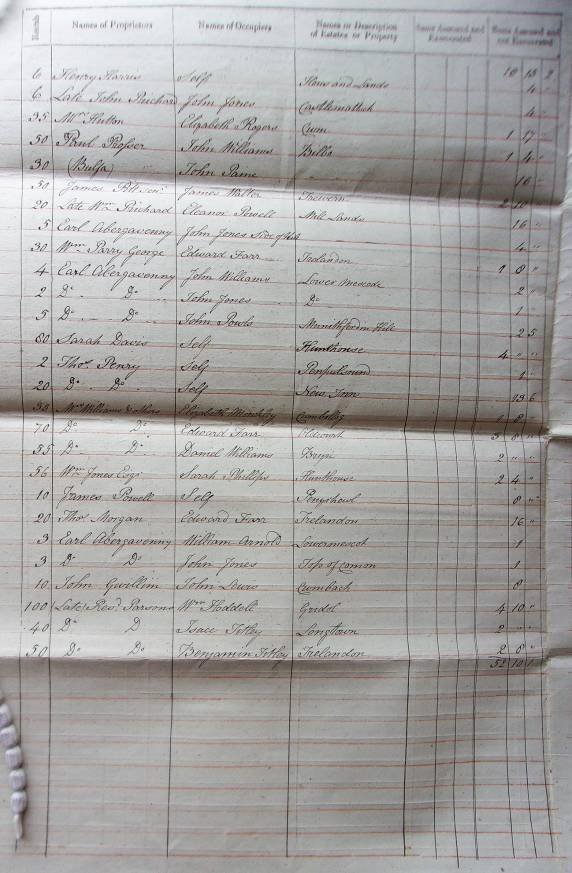 Rentals Names of Proprietors Names of Occupiers Names or Description of Estates or Property Sums Assessed and Exonerated Sums Assessed and not Exonerated
6 Henry Harris Self House and Lands 10 13 2
6 Late John Prichard John Jones 4 "
35 Mrs Hutton Elizabeth Rogers Cwm 4 "
50 Paul Prosser John Williams Bilbo 1 17 "
30 (Bulfa) John Pame 1 4 "
50 James Pitt senr James Walter Trewern 16 "
20 Late Wm Prichard Eleanor Powell Mill Lands 2 10
5 Earl Abergavenny John Jones Side of Hill 16 "
30 Wm Parry George Edward Farr Trelandon 4 "
4 Earl Abergavenny John Williams Lower 1 8 "
2 Do Do John Jones Do 2 "
5 Do Do John Powls Hill 1 "
80 Sarah Davis Self Hunthouse 2 5
2 Thos Penry Self 4 " "
20 Do Do Self New Inn 1 "
35 Wm Williams & others Elizabeth 13 6
70 Do Do Edward Farr Oldcourt 1 8
55 Do Do Daniel Williams 3 8 "
56 Wm Jones Esqr Sarah Phillips Hunthouse 2 " "
10 James Powell Self 2 4 "
20 Thos Morgan Edward Farr Trelandon 8 "
3 Earl Abergavenny William Arnold 16 "
3 Do Do John Jones Top of Comon 1
10 John Gwillim John Lewis Cwmbach 1
100 Late Revd Parsons Wm Hoddell Gridol 8
40 Do D Isaac Fitley Longtown 4 10 "
50 Do Do Benjamin Fitley Trelandon 2 " "
2 6 "
52 10 1